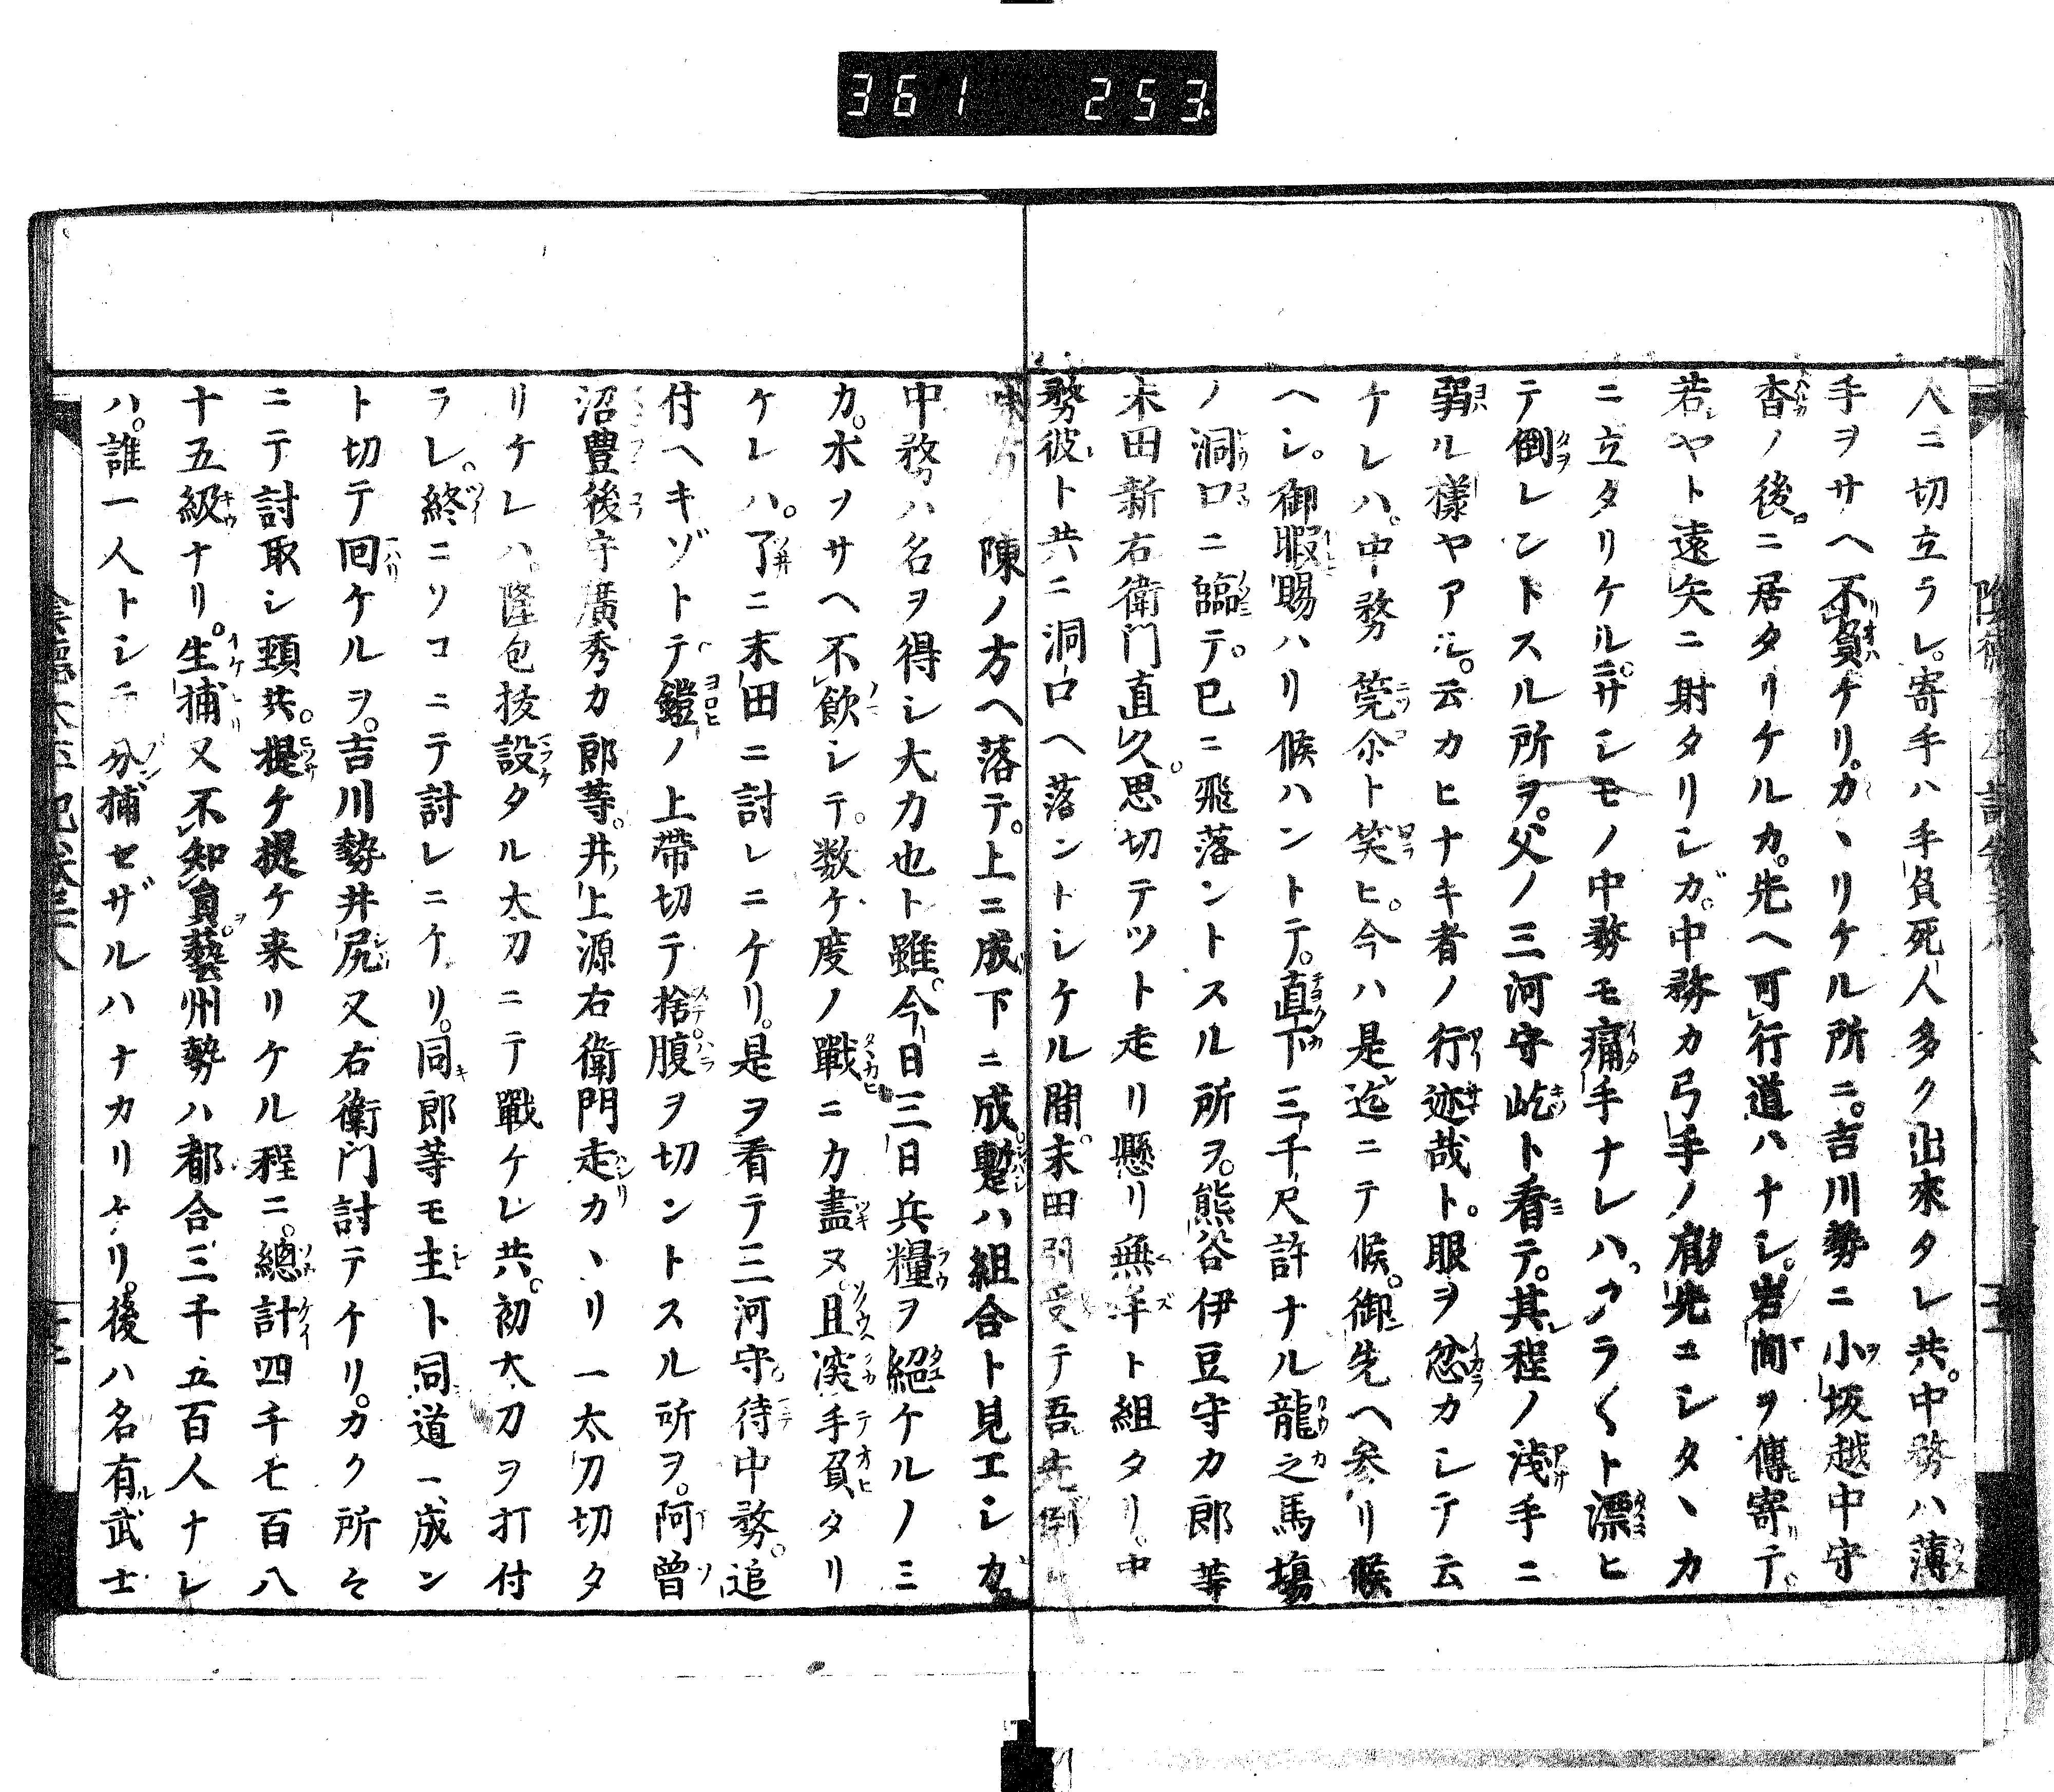 361 253
人ニ切立ラレ。寄手ハ手負死人多ク出來タレ共。中務ハ薄
手ヲサヘ不負ケリ。カヽリケル所ニ。吉川勢ニ小坂越中守
杳ノ後ニ居タリケルカ。先ヘ可行道ハナシ。岩間ヲ傳寄テ。
若ヤト遠矢ニ射タリシガ。中務カ弓手ノ肩先ニシタヽカ
ニ立タリケルニ。サシモノ中務モ痛手ナレハ。アラ〱ト漂ヒ
テ倒レントスル所ヲ。父ノ三河守屹ト看テ。其程ノ淺手ニ
弱ル樣ヤアル。云カヒナキ者ノ行迹哉ト。眼ヲ忿カシテ云
ケレハ。中務莞尒ト笑ヒ。今ハ是迄ニテ候。御先ヘ參リ候
ヘシ。御暇賜ハリ候ハントテ。直下三千尺許ナル龍之馬場
ノ洞口ニ臨テ。已ニ飛落ントスル所ヲ。熊谷伊豆守カ郎等
末田新右衛門直久。思切テツト走リ懸リ無手ト組タリ。中
務彼ト共ニ洞口ヘ落ントシケル間。末田引受テ吾先倒
陳ノ方ヘ落テ。上ニ成下ニ成暫ハ組合ト見エシカ。
中務ハ名ヲ得シ大力也ト雖。今日三日兵糧ヲ絕ケルノミ
カ。水ヲサヘ不飲シテ。数ケ度ノ戰ニ力盡ヌ。且深手負タリ
ケレハ。了ニ末田ニ討レニケリ。是ヲ看テ三河守。待中務。追
付ヘキゾトテ鎧ノ上帶切テ捨。腹ヲ切ントスル所ヲ。阿曾
沼豊後守廣秀カ郎等。井上源右衛門走カヽリ一太刀切タ
リケレハ。隆包抜設タル太刀ニテ戰ケレ共。初太刀ヲ打付
ラレ。終ニソコニテ討レニケリ。同郎等モ主ト同道ニ成ン
ト切テ回ケルヲ。吉川勢井尻又右衛門討テケリ。カク所々
ニテ討取シ頸共。提ケ提ケ来リケル程ニ。總計四千七百八
十五級ナリ。生捕又不知員。藝州勢ハ都合三千五百人ナレ
ハ。誰一人トシテ分捕セザルハナカリケリ。後ハ名有武士